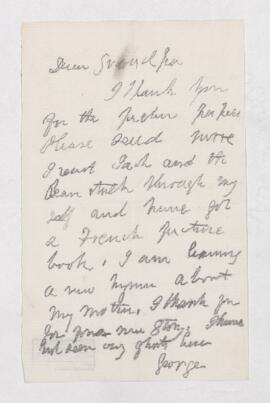 Dear Grandpa
I thank you
for the picture papers
Please send more
I read Jack and the
Bean stalk through my
self and have got
a French picture
book. I am learning
a new hymn about
my mother, I thank you
for your story, I have
not seen any ghosts here
George